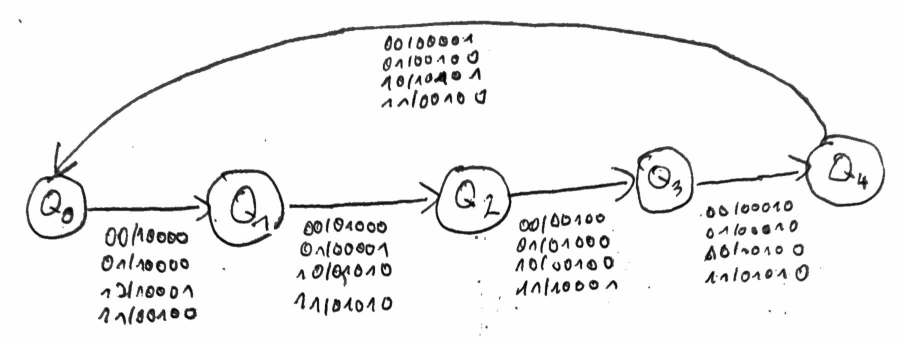 00/00001
01/00100
11/00100
Q₀
Q₁
Q₂
Q₃
Q₄
00/10000
01/10000
10/10001
11/00100
00/01000
01/00001
10/01010
11/01010
00/00100
01/01000
10/00100
11/10001
00/00010
01/00010
11/01010